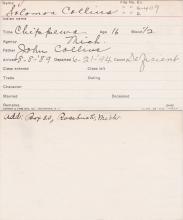 Name
Solomon Collins
Indian name
Tribe Chippewa Age 16 Blood 1/2
Agency Mich
Father John Collins
Arrived 8-8-'89 Departed 6-21-94 Cause Deficient
Class entered Class left
Trade Outing
Character
Married Deceased
Remarks
Add: Box 20, Rosebush, Mich